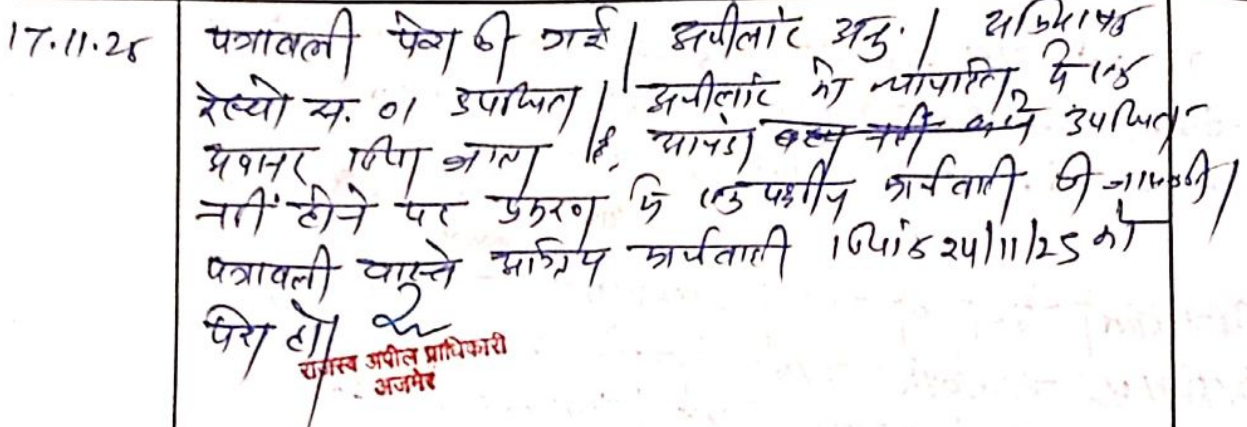 17.11.25 पत्रावली पेश की गई। अपीलांट अनु.। अभिभाषक
रेस्पो सं. 01 उपस्थित। अपीलांट को न्यायहित में एक
अवसर दिया जाता है, उपस्थित
नहीं होने पर प्रकरण में एक पक्षीय कार्यवाही की जावेगी।
पत्रावली वास्ते अग्रिम कार्यवाही दिनांक 24/11/25 को
पेश हो।
राजस्व अपील प्राधिकारी
अजमेर